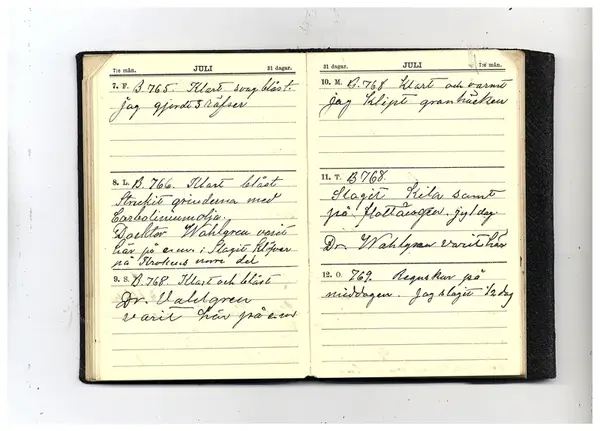 7:e mån. JULI 31 dagar.
7. F. B. 765. Klart svag blåst.
jag gjorde 3 räfser
8. L. B. 766. Klart blåst
Strukit grinderna med
Carbolineumolja.
Doktor Wahlgren varit
här på e.m. Slagit klöfver
på norre del
9. S. B. 768 Klart och blåst
Dr. Vahlgren
varit här på e.m
31 dagar. JULI 7:e mån.
10. M. B. 768 Klart och varmt
jag klipt granhäcken
11. T. B 768.
Slagit samt
på 1 dag
Dr. Wahlgren varit här
12. O. 769. Regnskur på
middagen. Jag slagit 1/2 dag